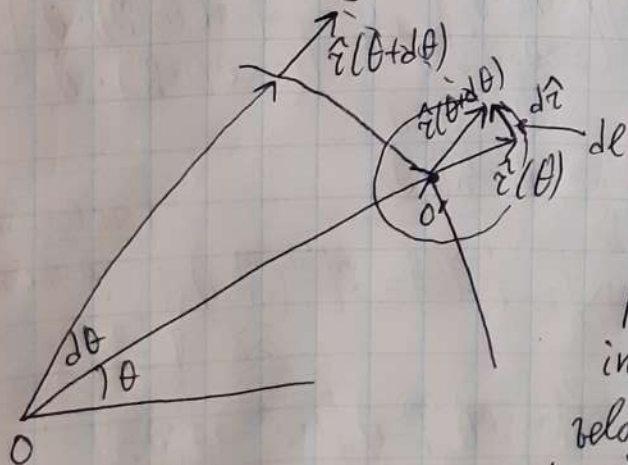 r̂(θ+dθ)
r̂(θ+dθ)
dr̂
dl
r̂(θ)
O'
dθ
θ
in
O